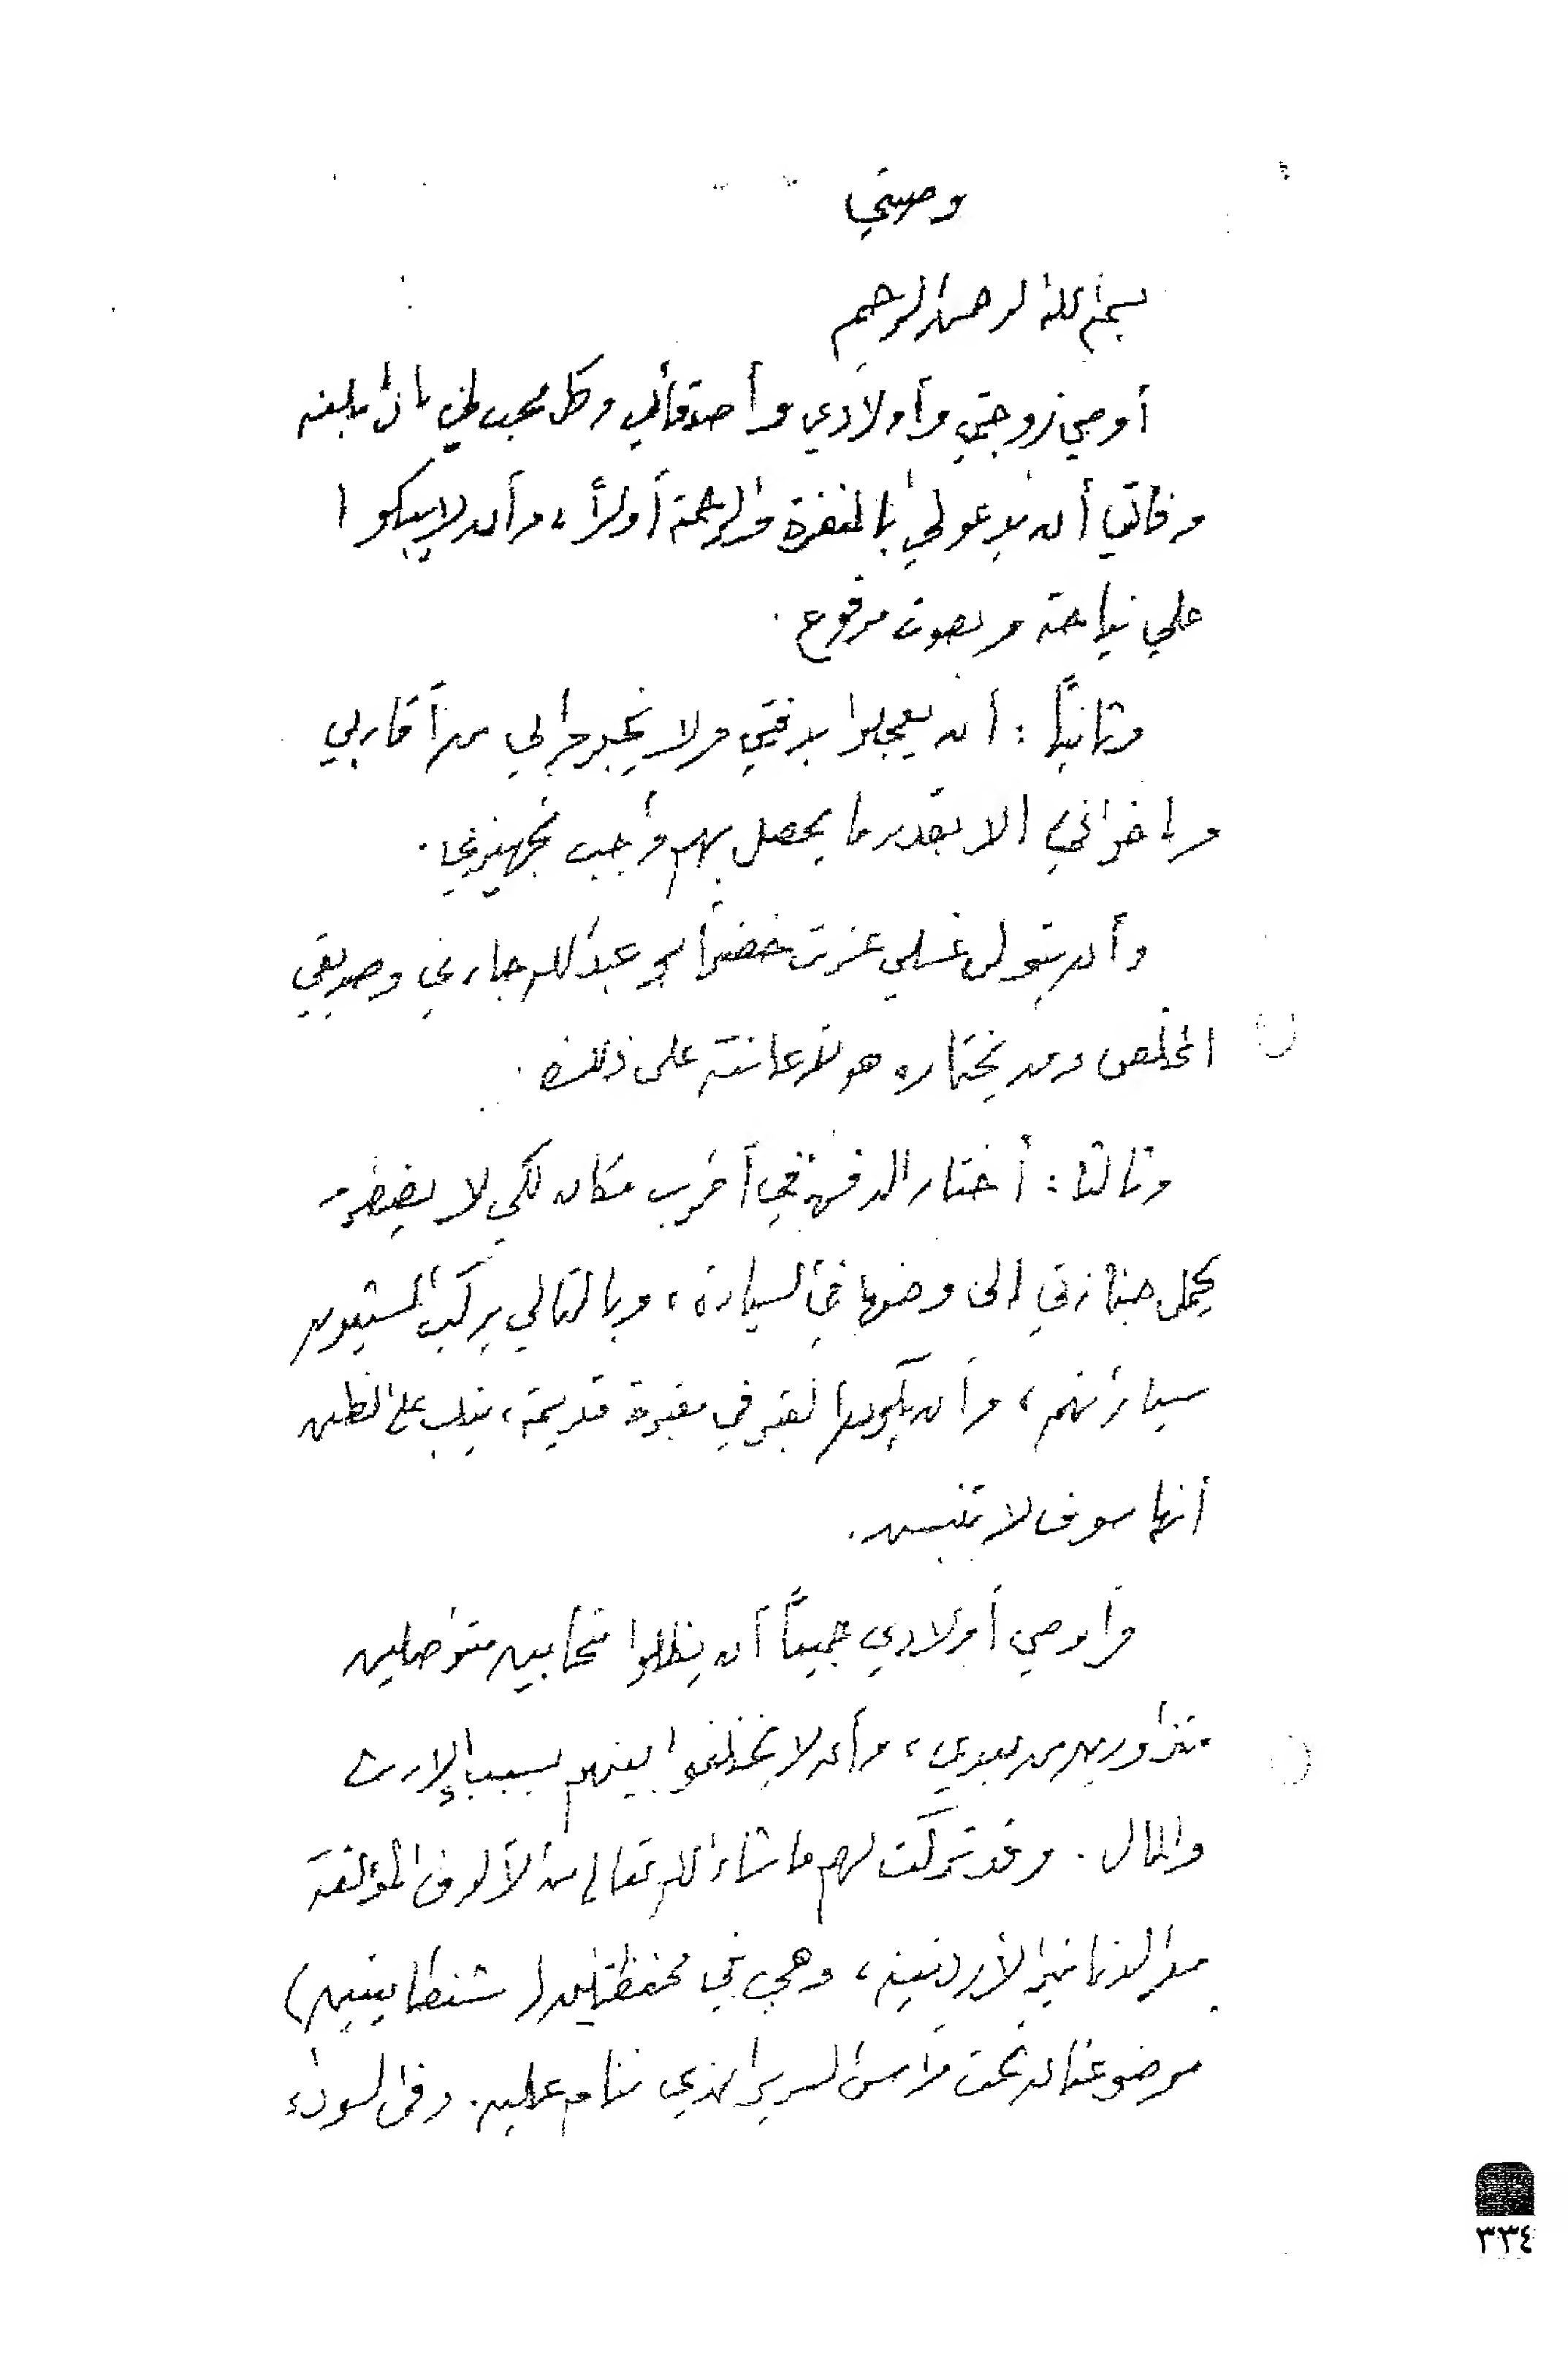 وصيتي
بسم الله الرحمن الرحيم
أوصي زوجتي وأولادي وأصدقائي وكل محب لي إذا بلغه
وفاتي أن يدعو لي بالمغفرة والرحمة أولاً، وأن لا يبكوا
علي نياحة وبصوت مرفوع.
وثانياً: أن يعجلوا بدفني ولا يخبروا لي من أقاربي
وإخواني إلا بقدر ما يحصل بهم واجب تجهيزي.
وأن يتولى غسلي عزت خضر أبو عبد الله جاري وصديقي
المخلص ومن يختاره هو لإعانته على ذلك.
وثالثا: أختار الدفن في أقرب مكان لكي لا يضطر من
يحمل جنازتي إلى وضعها في السيارة، وبالتالي يركب المشيعون
سياراتهم، وأن يكون القبر في مقبرة قديمة، يغلب على الظن
أنها سوف لا تنبش.
وأوصي أولادي جميعاً أن يظلوا متحابين متواصلين
متزاورين من بعدي، وأن لا يختلفوا بينهم بسبب الإرث
والمال. وقد تركت لهم ما شاء الله تعالى من الألوف المؤلفة
من الدنانير الأردنية، وهي في محفظتين (شنطايتين)
موضوعتان تحت رأس السرير الذي ننام عليه. وفي السوداء
٣٣٤